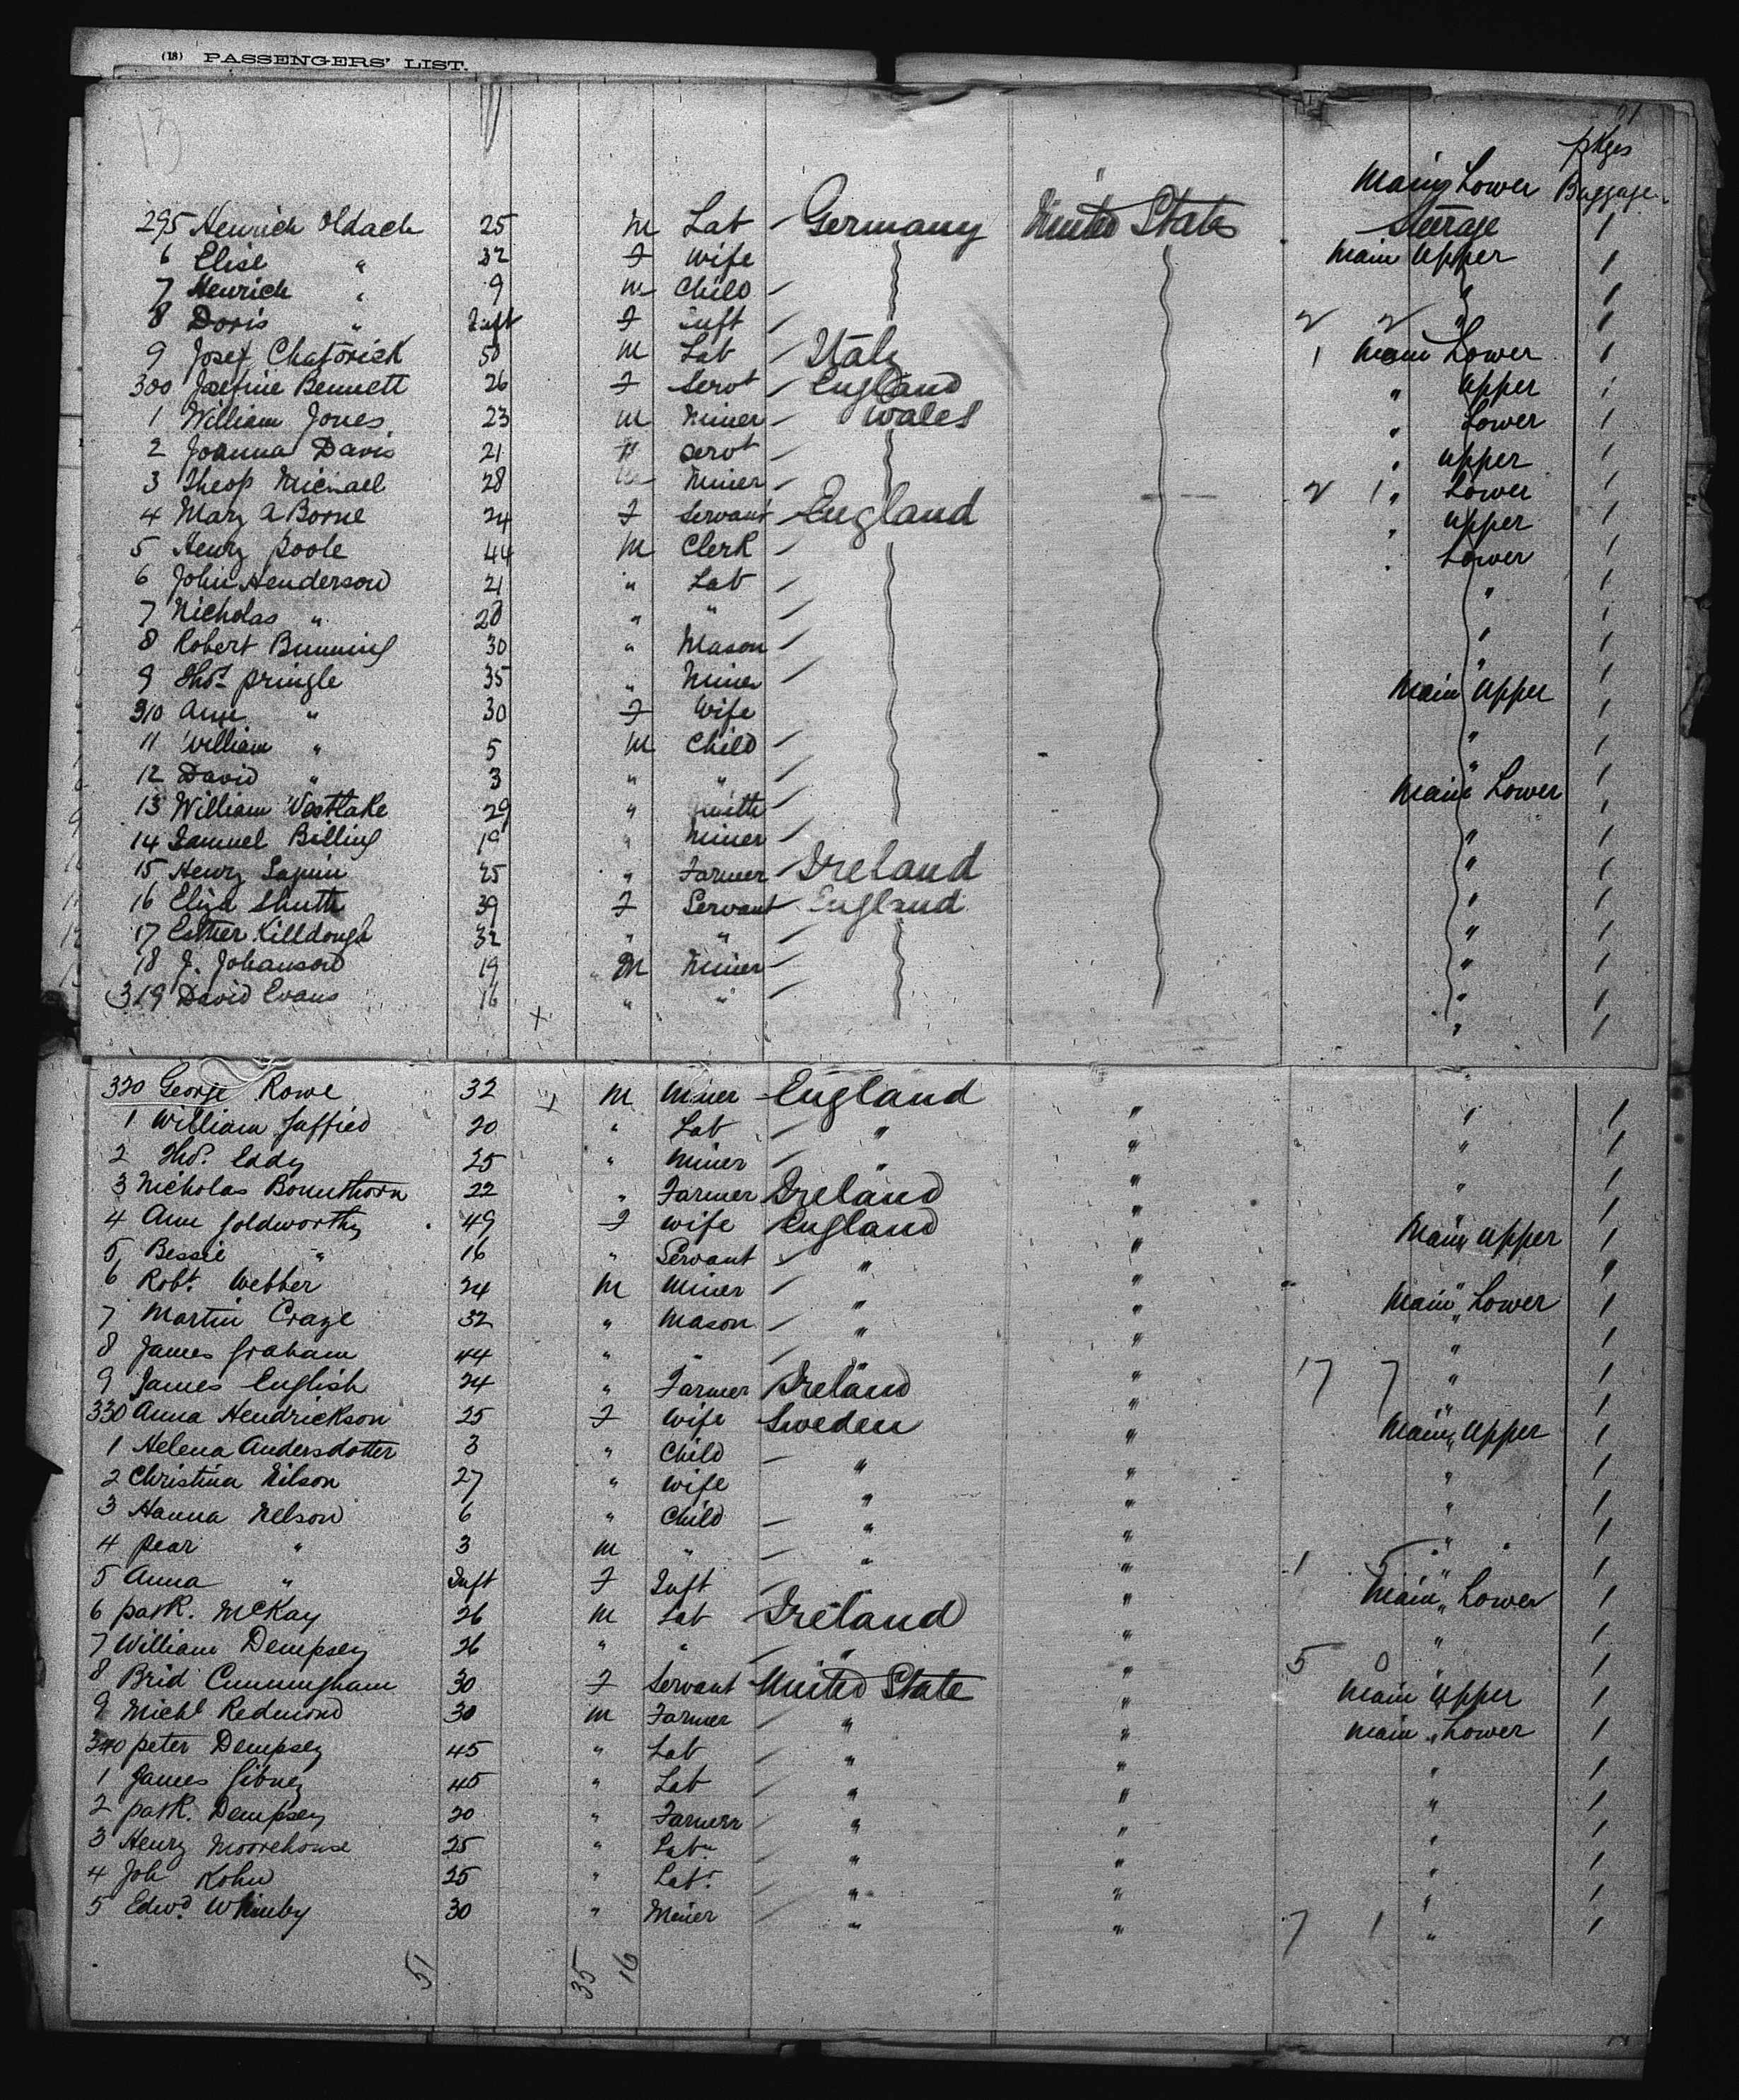 (18) PASSENGERS' LIST.
13
81
pkges
Main Lower Baggage.
295 Henrich Oldach 25 M Lab Germany United States Steerage 1
6 Elise " 32 F Wife Main Upper 1
7 Henrich " 9 M Child " 1
8 Doris " Inft F Inft 2 2 " 1
9 Josef Chaforick 50 M Lab Italy 1 Main Lower 1
300 Josefine Bennett 26 F Servt England " Upper 1
1 William Jones 23 M Miner Wales " Lower 1
2 Joanna Davis 21 F Servt " Upper 1
3 Theop Michael 28 M Miner 2 1 " Lower 1
4 Mary A Borne 24 F Servant England " Upper 1
5 Henry Poole 44 M Clerk " Lower 1
6 John Henderson 21 " Lab " 1
7 Nicholas " 28 " " 1
8 Robert Bunning 30 " Mason " 1
9 Thos. Pringle 35 " Miner " 1
310 Ann " 30 F Wife Main Upper 1
11 William " 5 M Child " 1
12 David " 3 " " " 1
13 William Westlake 29 " Smith Main Lower 1
14 Samuel Billing 19 " Miner " 1
15 Henry 25 " Farmer Ireland " 1
16 Eliza Shutt 39 F Servant England " 1
17 Esther Killdough 32 " " " 1
18 J. Johanson 19 M Miner " 1
319 David Evans 16 + " " " 1
320 George Rowe 32 + M Miner England " " 1
1 William 20 " Lab " " " 1
2 Thos. Eddy 25 " Miner " " " 1
3 Nicholas 22 " Farmer Ireland " " 1
4 Ann Goldworthy 49 F Wife England " Main Upper 1
5 Bessie " 16 " Servant " " " 1
6 Robt. Webber 24 M Miner " " Main Lower 1
7 Martin Craze 32 " Mason " " " 1
8 James Graham 44 " " " " " 1
9 James English 24 " Farmer Ireland " 17 7 " 1
330 Anna Hendrickson 25 F Wife Sweden " Main Upper 1
1 Helena Andersdotter 3 " Child " " " 1
2 Christina Nilson 27 " Wife " " " 1
3 Hanna Nelson 6 " Child " " " 1
4 Pear " 3 M " " " " 1
5 Anna " Inft F Inft " 1 5 " 1
6 Patk. McKay 26 M Lab Ireland " Main Lower 1
7 William Dempsey 26 " " " " 5 0 " 1
8 Brid Cunningham 30 F Servant United State " Main Upper 1
9 Michl Redmond 30 M Farmer " " Main Lower 1
340 Peter Dempsey 45 " Lab " " " 1
1 James Gibney 45 " Lab " " " 1
2 Patk. Dempsey 20 " Farmer " " " 1
3 Henry Moorehouse 25 " Lab. " " " 1
4 Joh Kohn 25 " Lab. " " " 1
5 Edwd. Whimby 30 " Miner " " 7 1 " 1
51 35 16